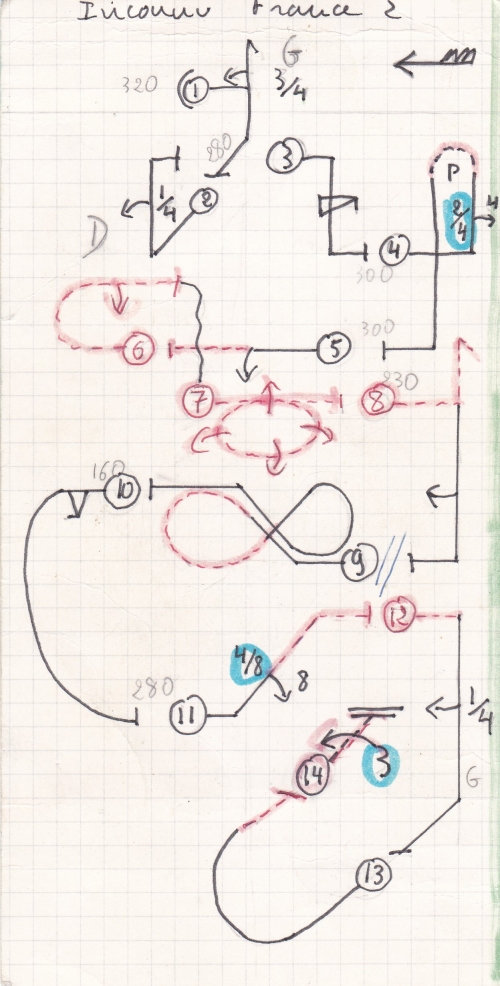 Inconnu France 2
G
320 1 3/4
280
3
P
1/4 2 2/4 4
D
4
300
300
6 5
230
7 8
160
10
9
12
4/8
8
280
11 1/4
3
14 G
13